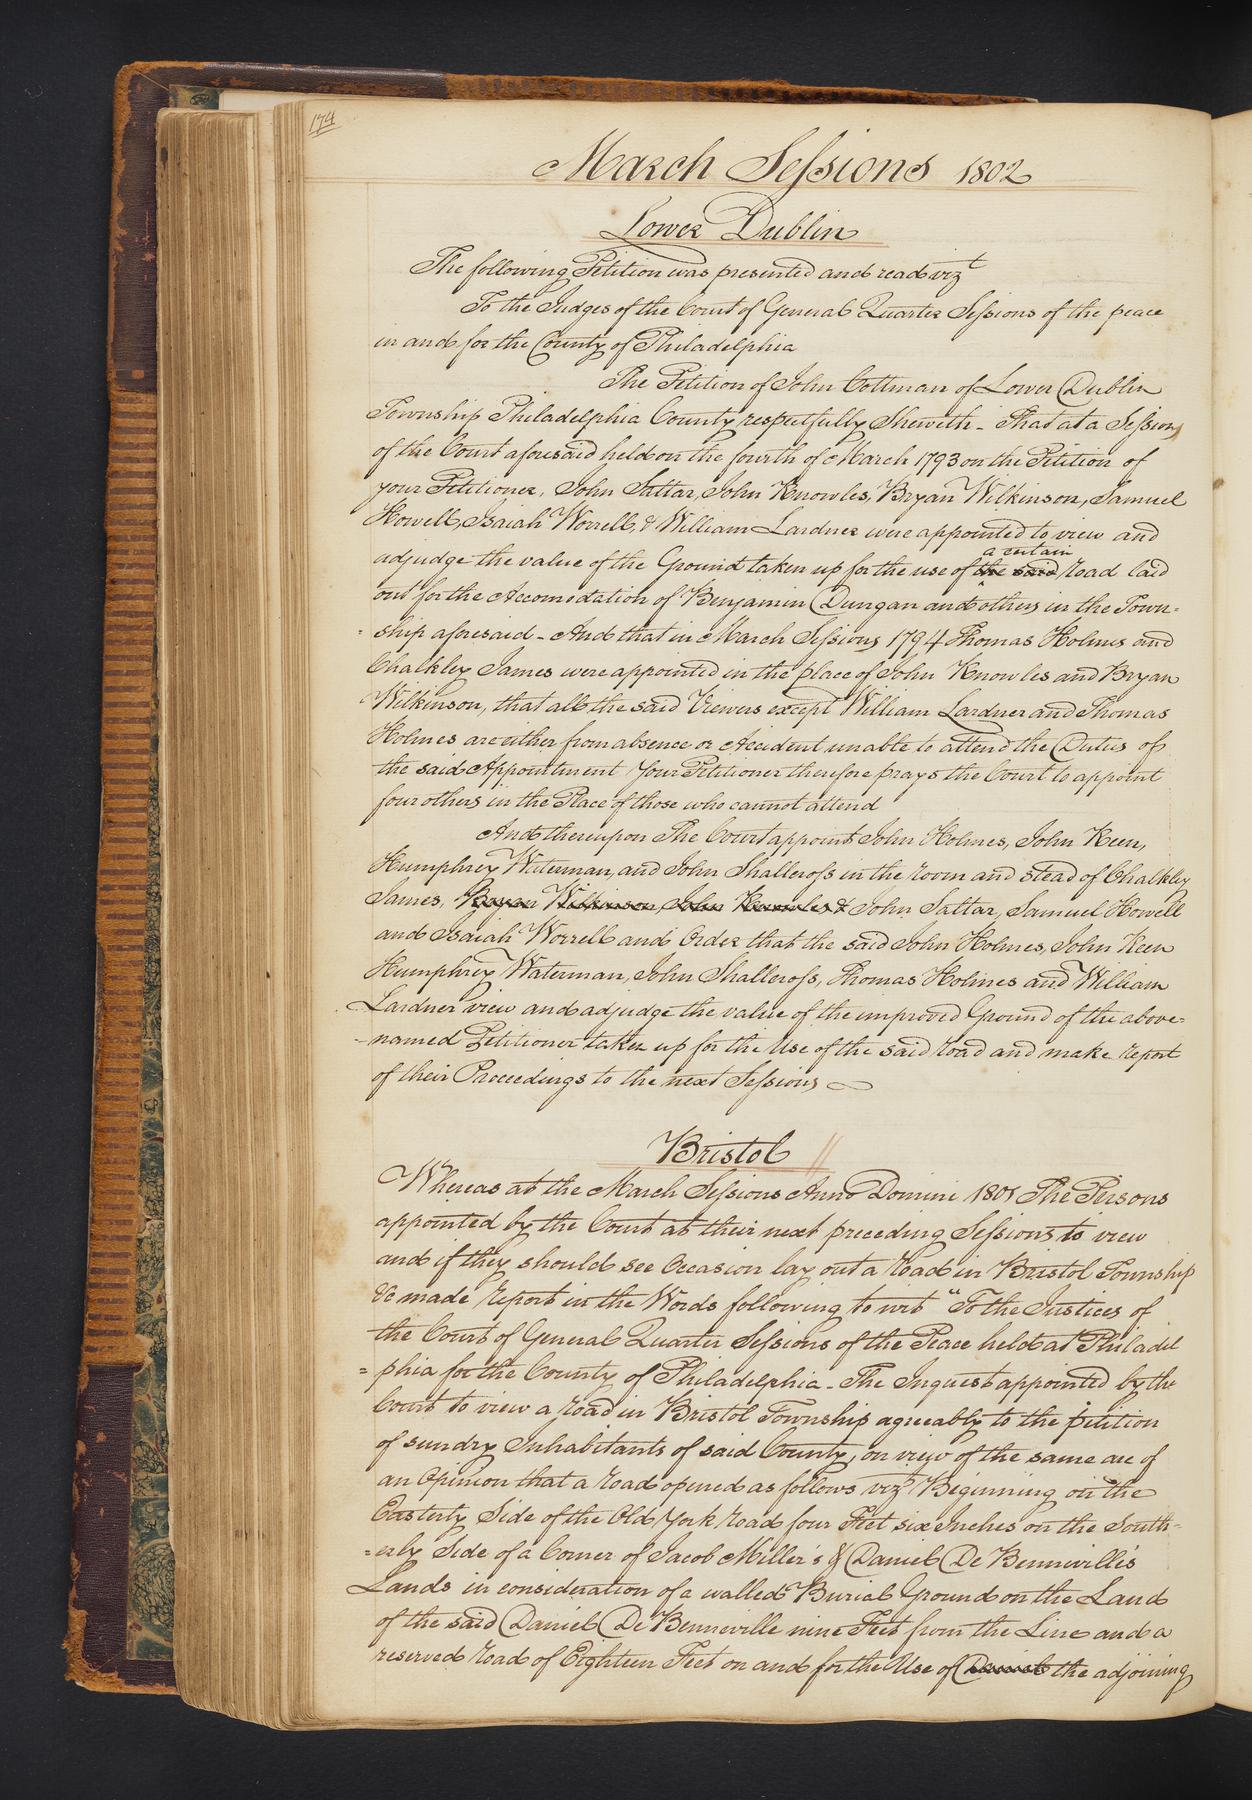 174
March Sessions 1802
Lower Dublin
The following Petition was presented and read vizt
To the Judges of the Court of General Quarter Sessions of the peace
in and for the County of Philadelphia
The Petition of John Cottman of Lower Dublin
Township Philadelphia County respectfully Sheweth - That at a Sessions
of the Court aforesaid held on the fourth of March 1793 on the Petition of
your Petitioner, John Sattar, John Knowles, Bryan Wilkinson, Samuel
Howell, Isaiah Worrell, & William Lardner were appointed to view and
a certain
adjudge the value of the Ground taken up for the use of the said road laid
out for the Accomodation of Benjamin Dungan and others in the Town-
-ship aforesaid - And that in March Sessions 1794 Thomas Holmes and
Chalkley James were appointed in the place of John Knowles and Bryan
Wilkinson, that all the said Viewers except William Lardner and Thomas
Holmes are either from absence or Accident unable to attend the Duties of
the said Appointment Your Petitioner therefore prays the Court to appoint
four others in the Place of those who cannot attend
And thereupon The Court appoint John Holmes, John Keen,
Humphrey Waterman, and John Shallcross in the room and stead of Chalkley
James, Bryan Wilkinson, John Knowles & John Sattar, Samuel Howell
and Isaiah Worrell and Order that the said John Holmes, John Keen
Humphrey Waterman, John Shallcross, Thomas Holmes and William
Lardner view and adjudge the value of the improved Ground of the above-
-named Petitioner taken up for the Use of the said road and make report
of their Proceedings to the next Sessions
Bristol //
Whereas at the March Sessions Anno Domini 1801 The Persons
appointed by the Court at their next preceding Sessions to view
and if they should see Occasion lay out a road in Bristol Township
&c made report in the Words following to wit "To the Justices of
the Court of General Quarter Sessions of the Peace held at Philadel
=phia for the County of Philadelphia - The Inquest appointed by the
Court to view a road in Bristol Township agreeably to the petition
of sundry Inhabitants of said County, on view of the same are of
an Opinion that a road opened as follows vizt Beginning on the
Easterly Side of the Old York road four Feet six Inches on the South-
-erly Side of a Corner of Jacob Miller's & Daniel De Benneville's
Lands in consideration of a walled Burial Ground on the Land
of the said Daniel De Benneville nine Feet from the Line and a
reserved road of Eighteen Feet on and for the Use of Daniel the adjoining